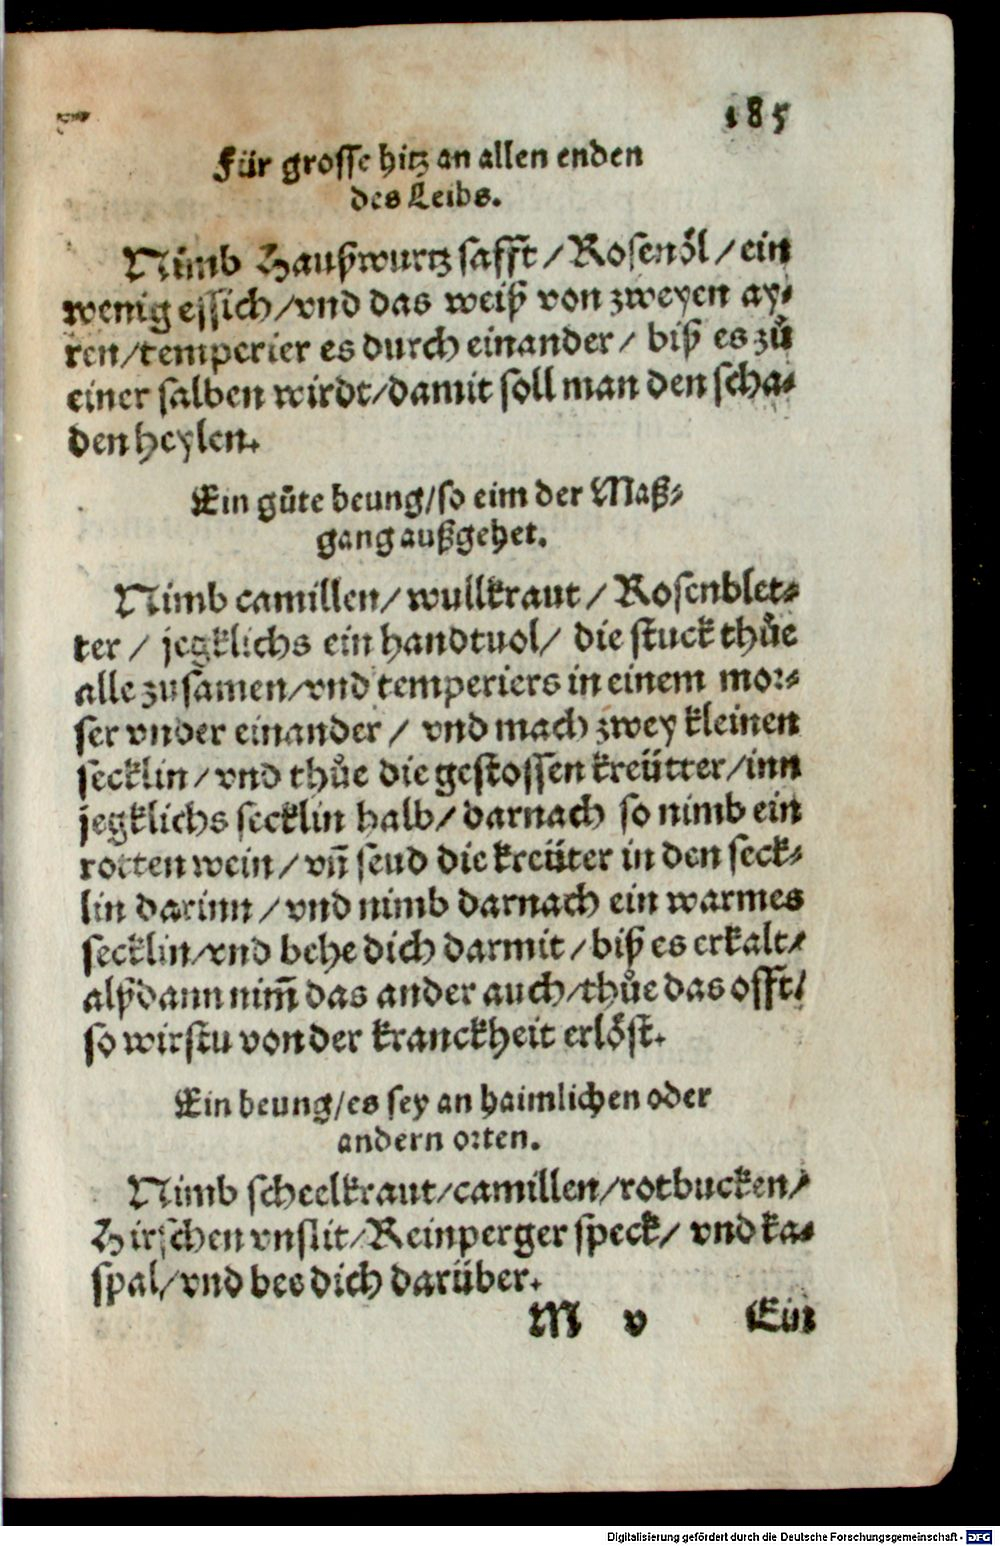 185
Für grosse hitz an allen enden
des Leibs.
Nimb Haußwurtz safft / Rosenöl / ein
wenig essich / vnd das weiß von zweyen ay⸗
ren / temperier es durch einander / biß es zů
einer salben wirdt / damit soll man den scha⸗
den heylen.
Ein gůte beung / so eim der Maß⸗
gang außgehet.
Nimb camillen / wullkraut / Rosenblet⸗
ter / jegklichs ein handtuol / die stuck thůe
alle zusamen / vnd temperiers in einem mor⸗
ser vnder einander / vnd mach zwey kleinen
secklin / vnd thůe die gestossen kreütter / inn
jegklichs secklin halb / darnach so nimb ein
rotten wein / vñ seud die kreüter in den seck⸗
lin darinn / vnd nimb darnach ein warmes
secklin / vnd behe dich darmit / biß es erkalt /
alßdann nim̃ das ander auch / thůe das offt /
so wirstu von der kranckheit erlöst.
Ein beung / es sey an haimlichen oder
andern orten.
Nimb scheelkraut / camillen / rotbucken /
Hirschen vnslit / Reinperger speck / vnd ka⸗
spal / vnd bee dich darüber.
M v Ein
Digitalisierung gefördert durch die Deutsche Forschungsgemeinschaft - DFG